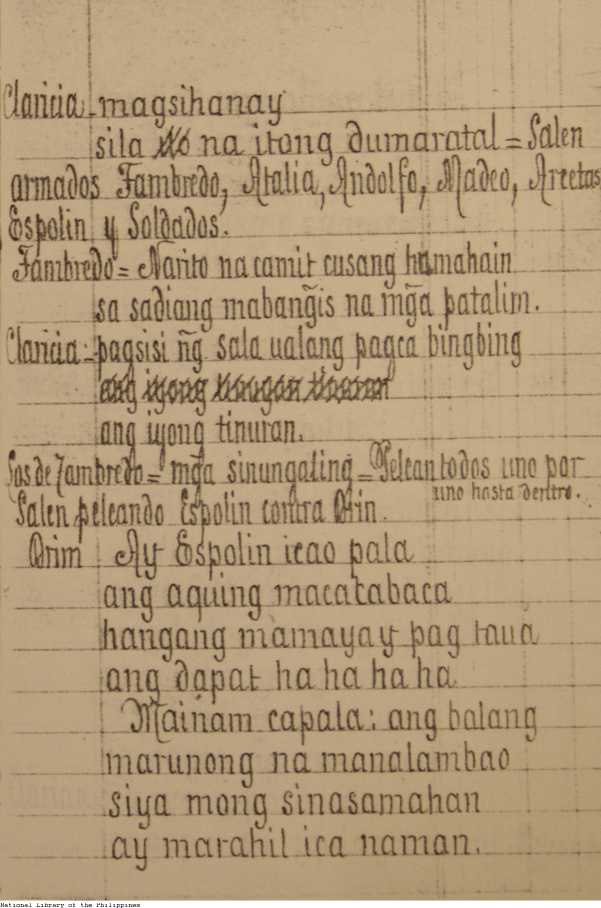 Claricia - magsihanay
sila na itong dumaratal = Salen
armados Fambredo, Atalia, Andolfo, Madeo, Arectas
Espolin y Soldados.
Fambredo = Narito na camit cusang humahain
sa sadiang mabang̃is na mg̃a patalim.
Claricia = pagsisi ng̃ sala ualang pagca bingbing
ang iyong
ang iyong tinuran.
Sos de Fambredo = mg̃a sinungaling = Pelean todos uno por
uno hasta dentro.
Salen peleando Espolin contra Orin.
Orim Ay Espolin icao pala
ang aquing macacabaca
hangang mamayay pag taua
ang dapat ha ha ha ha
Mainam capala: ang balang
marunong na manalambao
siya mong sinasamahan
ay marahil ica naman.
National Library of the Philippines